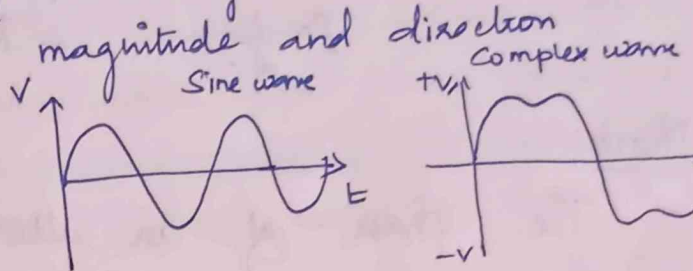 magnitude and direction
Sine wave
Complex wave
V
+V
t
-V